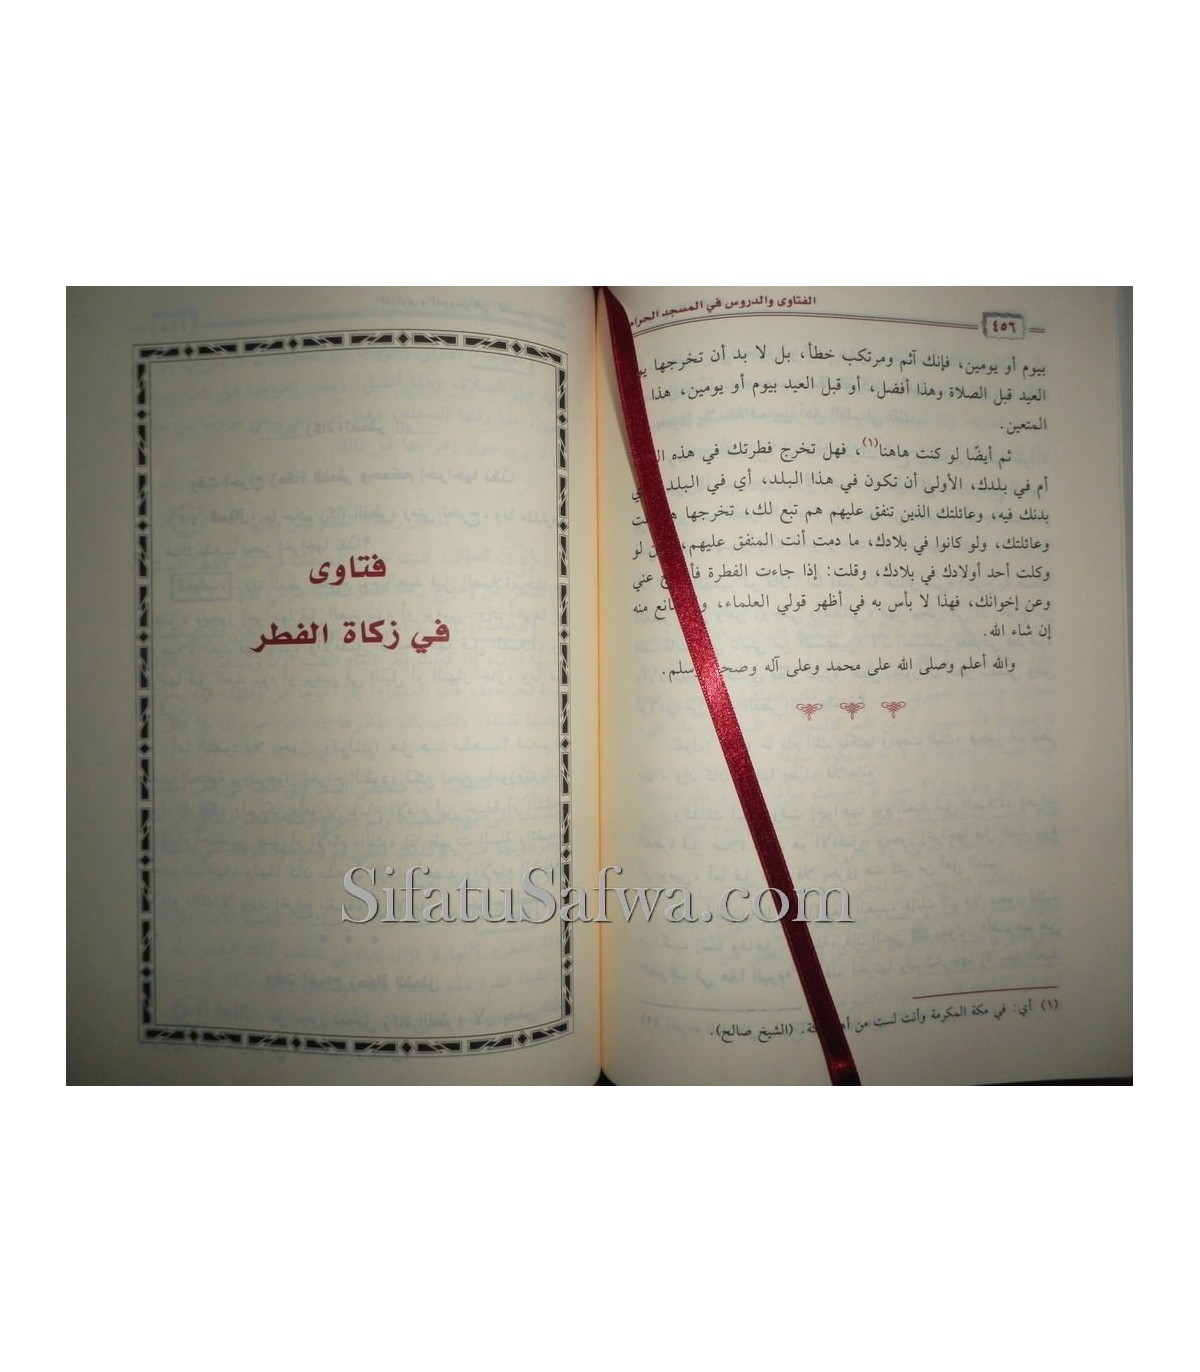 الفتاوى والدروس في المسجد الحرام
٤٥٦
بيوم أو يومين، فإنك آثم ومرتكب خطأ، بل لا بد أن تخرجها
العيد قبل الصلاة وهذا أفضل، أو قبل العيد بيوم أو يومين، هذا
المتعين.
ثم أيضًا لو كنت هاهنا(١)، فهل تخرج فطرتك في هذه
أم في بلدك، الأولى أن تكون في هذا البلد، أي في البلد
بدنك فيه، وعائلتك الذين تنفق عليهم هم تبع لك، تخرجها
وعائلتك، ولو كانوا في بلادك، ما دمت أنت المنفق عليهم، لو
وكلت أحد أولادك في بلادك، وقلت: إذا جاءت الفطرة عني
وعن إخوانك، فهذا لا بأس به في أظهر قولي العلماء، منه
إن شاء الله.
والله أعلم وصلى الله على محمد وعلى آله وسلم.
(١) أي: في مكة المكرمة وأنت لست من (الشيخ صالح).
فتاوى
في زكاة الفطر
SifatuSafwa.com